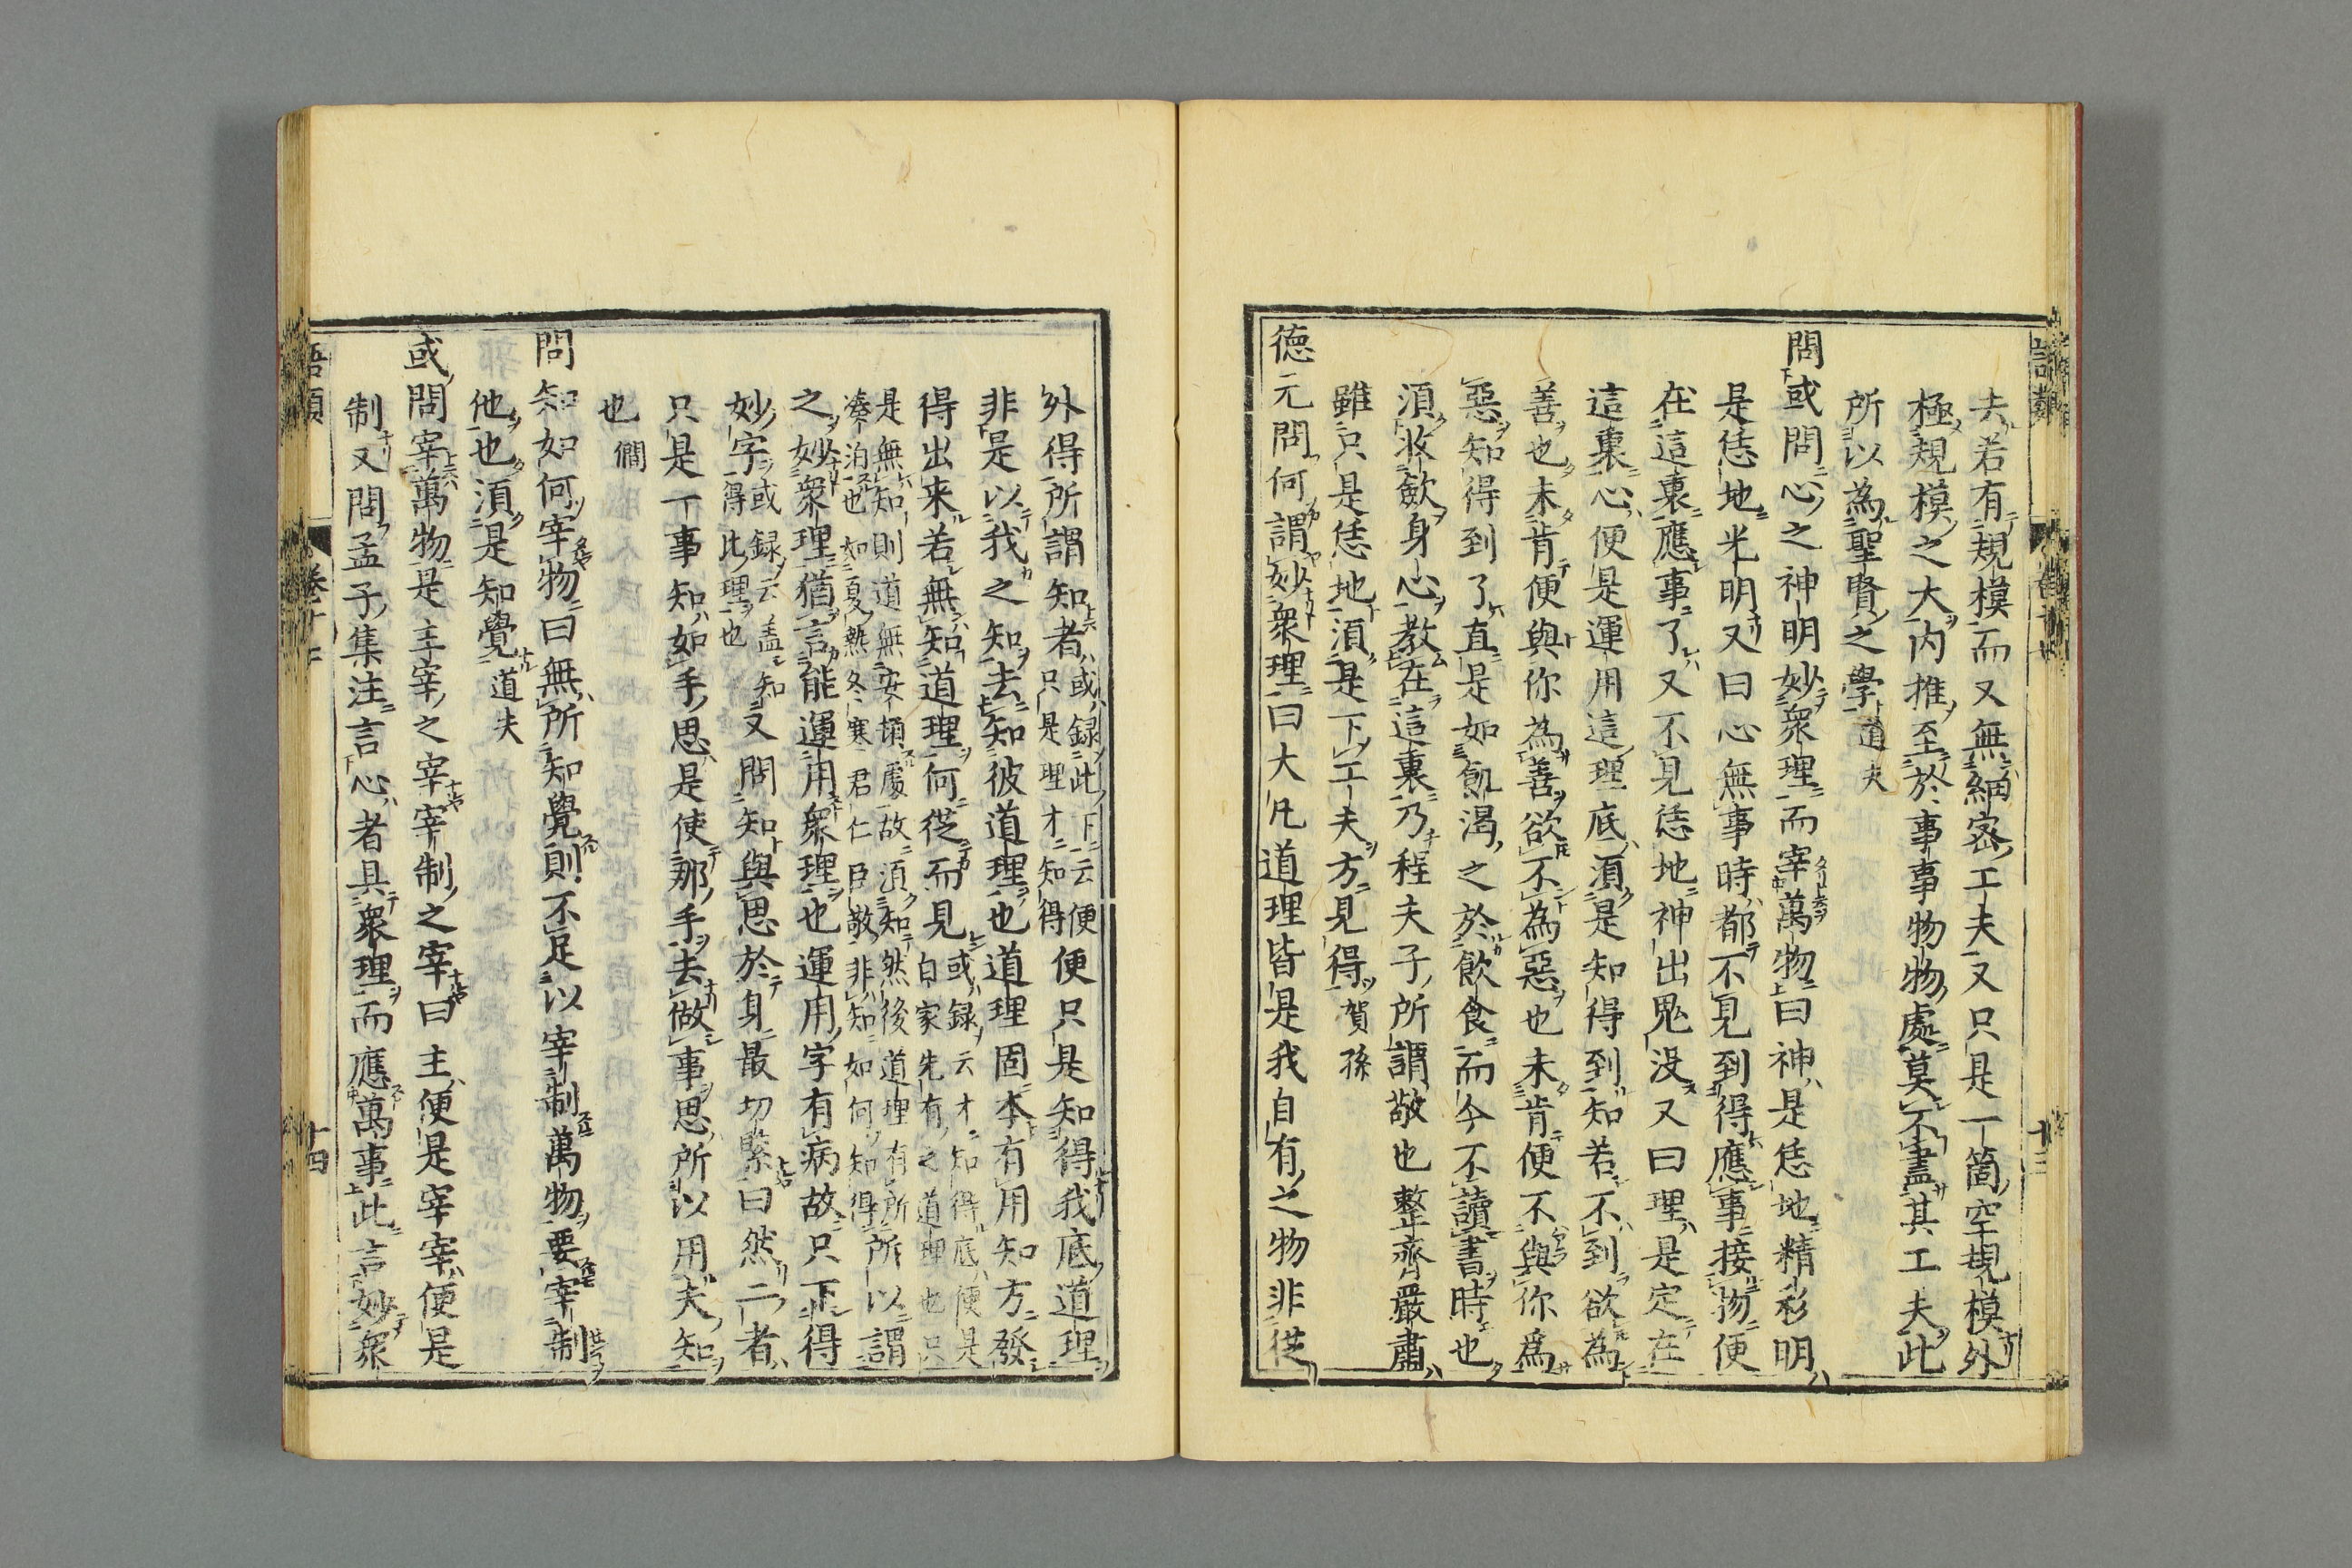 去若有規模而又無細密工夫又只是一箇空規模外
極規模之大内推至於事事物物處莫不盡其工夫此
所以為聖賢之學道夫
問或問心之神明妙衆理而宰萬物曰神是恁地精彩明
是恁地光明又曰心無事時都不見到得應事接物便
在這裏應事了又不見恁地神出鬼没又曰理是定在
這裏心便是運用這理底須是知得到知若不到欲為
善也未肯便與你為善欲不為惡也未肯便不與你為
惡知得到了直是如飢渇之於飲食而今不讀書時也
須收斂身心教在這裏乃程夫子所謂敬也整齊嚴肅
雖只是恁地須是下工夫方見得賀孫
徳元問何謂妙衆理曰大凡道理皆是我自有之物非從
外得所謂知者或録此下云便只是理才知得便只是知得我底道理
非是以我之知去知彼道理也道理固本有用知方發
得出来若無知道理何從而見或録云才知得底便是自家先有之道理也只
是無知則道無安頓處故須知然後道理有所湊泊也如夏熱冬寒君仁臣敬非知如何知得所以謂
之妙衆理猶言能運用衆理也運用字有病故只下得
妙字或録云盖知得此理也又問知與思於身最切緊曰然二者
只是一事知如手思是使那手去做事思所以用夫知
也僩
問知如何宰物曰無所知覺則不足以宰制萬物要宰制
他也須是知覺道夫
或問宰萬物是主宰之宰宰制之宰曰主便是宰宰便是
制又問孟子集注言心者具衆理而應萬事此言妙衆